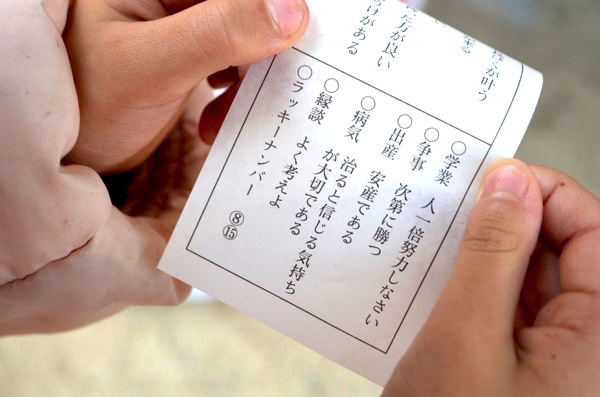 が叶う
た方が良い
けがある
○学業　人一倍努力しなさい
○争事　次第に勝つ
○出産　安産である
○病気　治ると信じる気持ち
が大切である
○縁談　よく考えよ
○ラッキーナンバー　⑧⑮